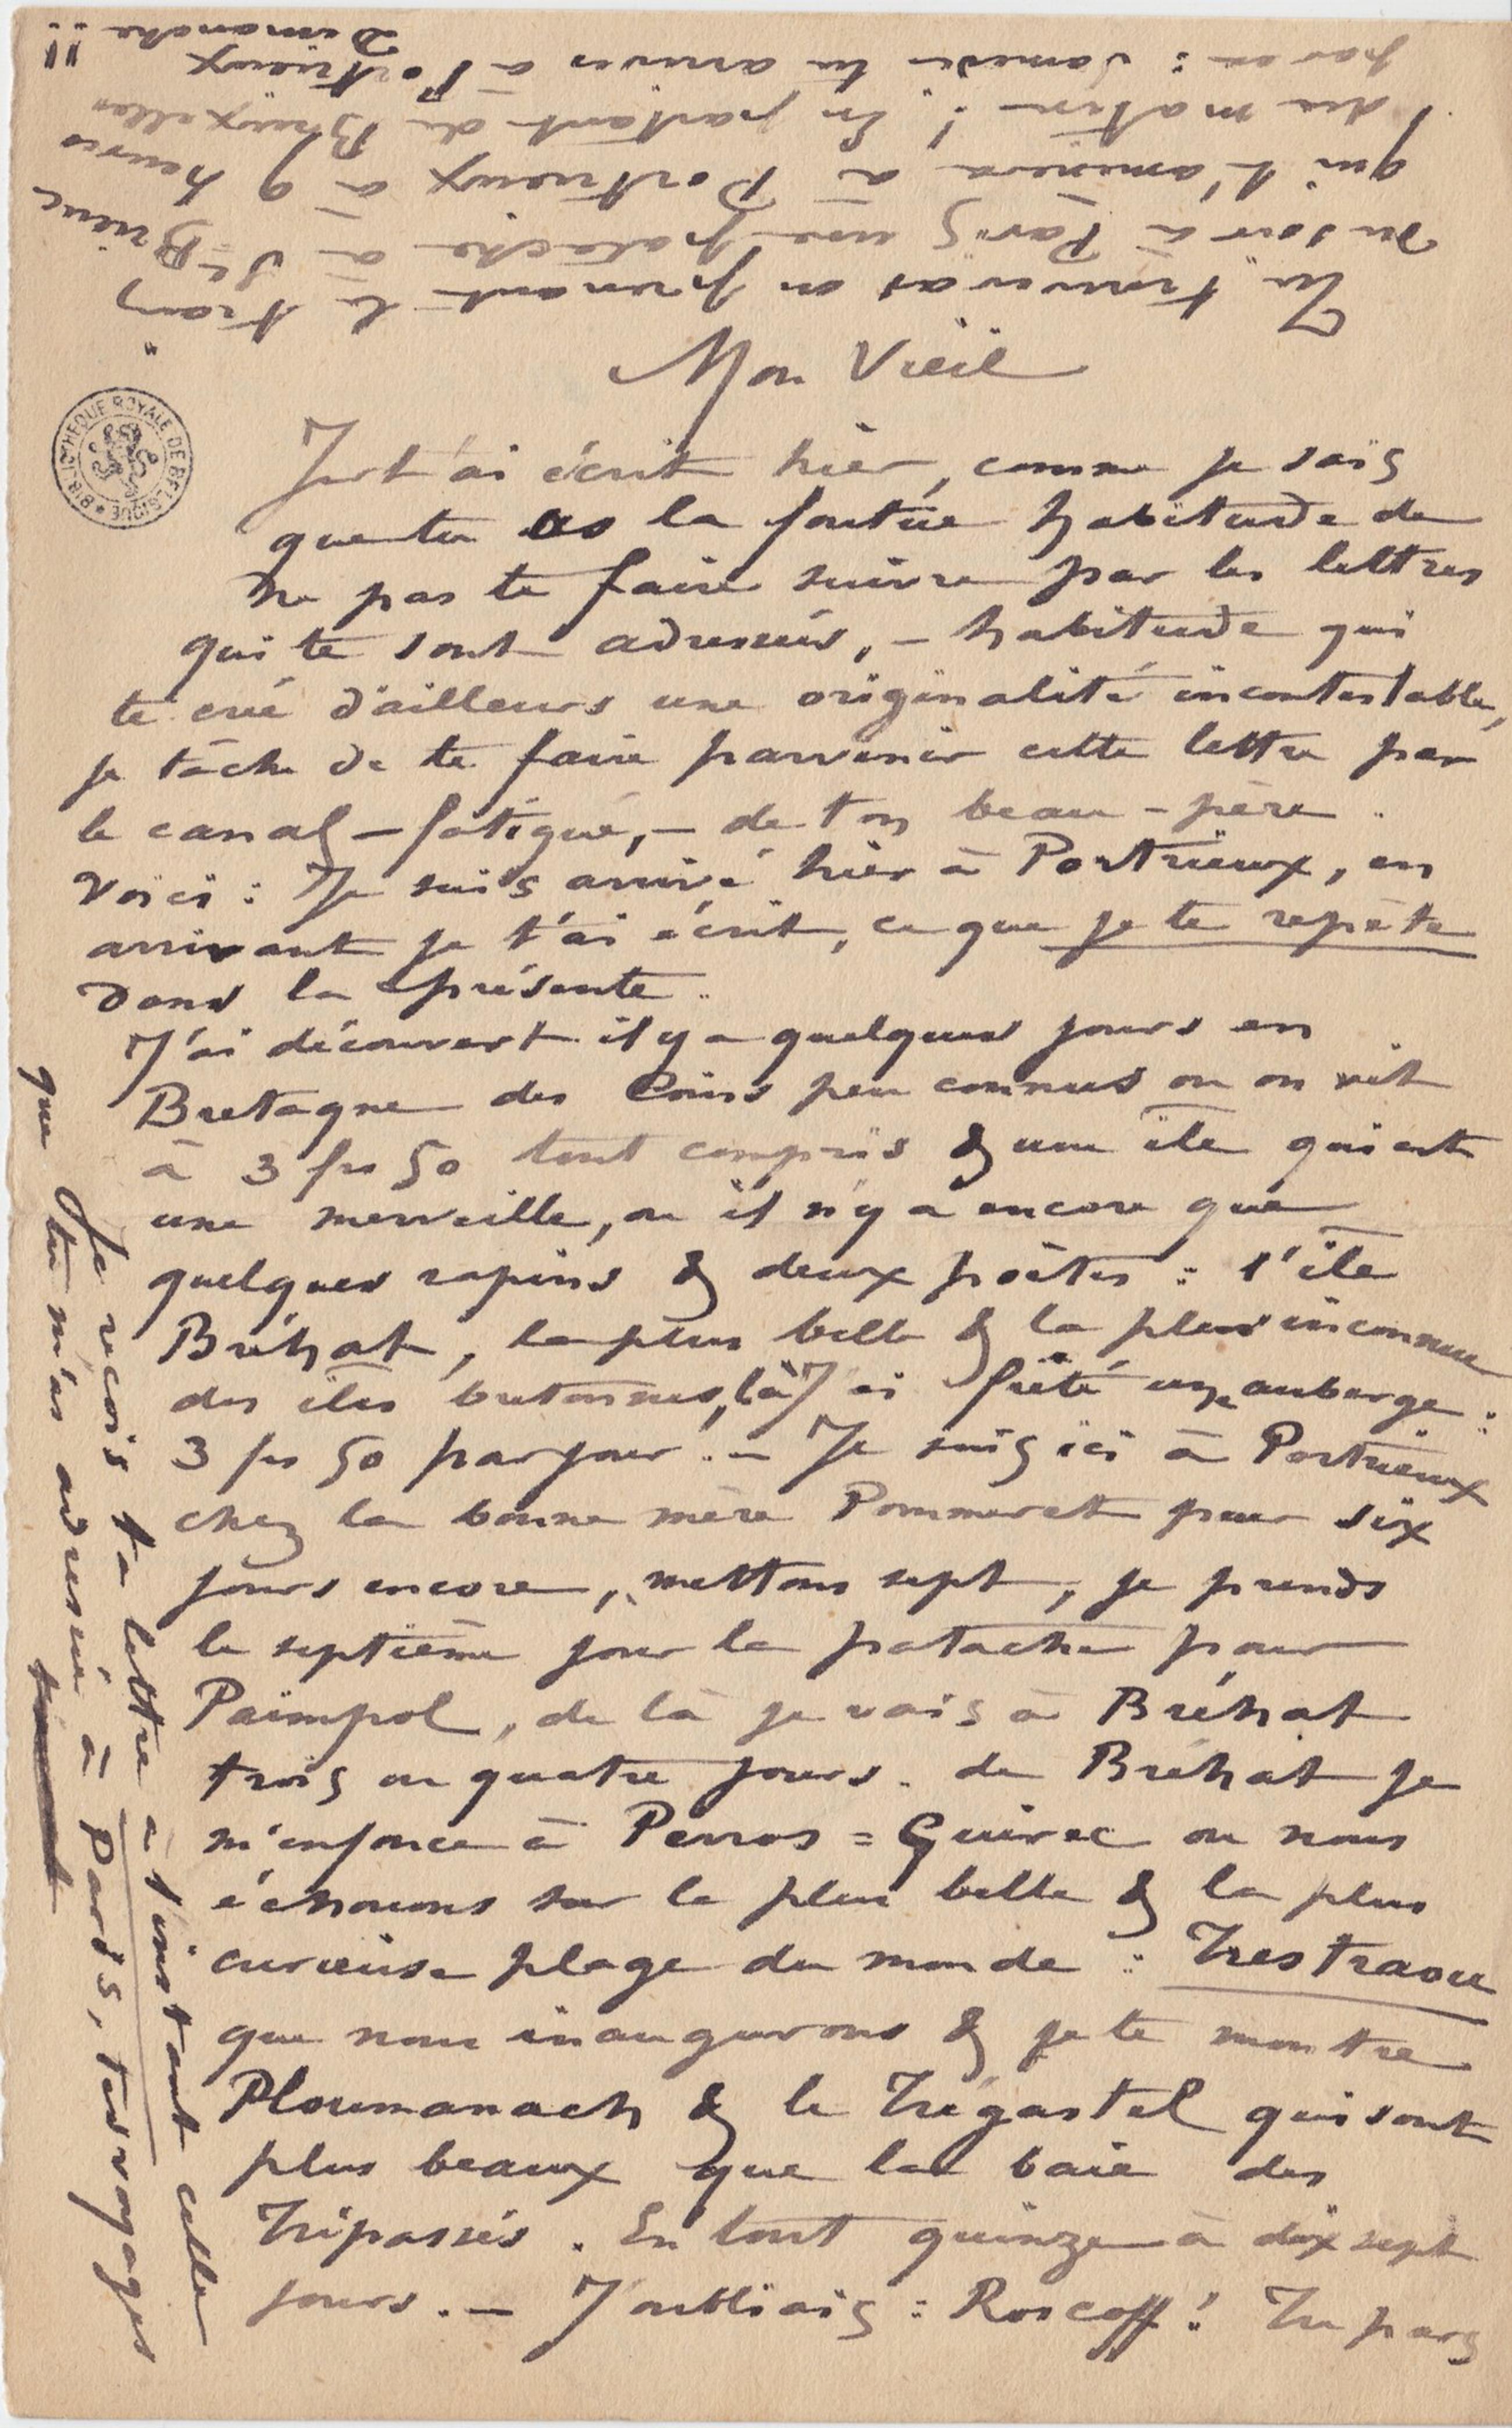 Mon Vieil
Je t'ai écrit hier, comme je sais
que tu as la foutue habitude de
ne pas te faire suivre par les lettres
qui te sont adressées, – habitude qui
te crée d'ailleurs une originalité incontestable,
je tâche de te faire parvenir cette lettre par
le canal – fatigué, – de ton beau-père.
Voici : Je suis arrivé hier à Portrieux, en
arrivant je t'ai écrit, ce que je te repète
dans la présente.
J'ai découvert il y a quelques jours en
Bretagne des Coins peu connus ou on vit
à 3 frs 50 tout compris & une île qui est
une merveille, ou il n'y a encore que
quelques rapins & deux poètes : l'île
Bréhat, la plus belle & la plus inconnue
des îles bretonnes, là J'ai frété une auberge :
3 frs 50 par jour ! – Je suis ici à Portrieux
chez la bonne mère Pommeret pour six
jours encore, mettons sept, je prends
le septième jour la patache pour
Paimpol, de là je vais à Bréhat
trois ou quatre jours. de Bréhat je
m'enfonce à Perros = Guirec ou nous
échouons sur la plus belle & la plus
curieuse plage du monde : Trestraou
que nous inaugurons & je te montre
Ploumanach & le Trégastel qui sont
plus beaux que la baie des
Trépassés. En tout quinze à dix sept
jours. – J'oubliais : Roscoff ! Tu pars
Tu trouveras en prenant le train
du soir à Paris une patache à St-Brieuc
qui t'amènera à Portrieux à 9 heures
du matin ! En partant de Bruxelles
par ex : Samedi tu arrives à Portrieux
Dimanche !!
Je reçois ta lettre à l'instant celle
que tu m'as adressée à Paris, tes voyages